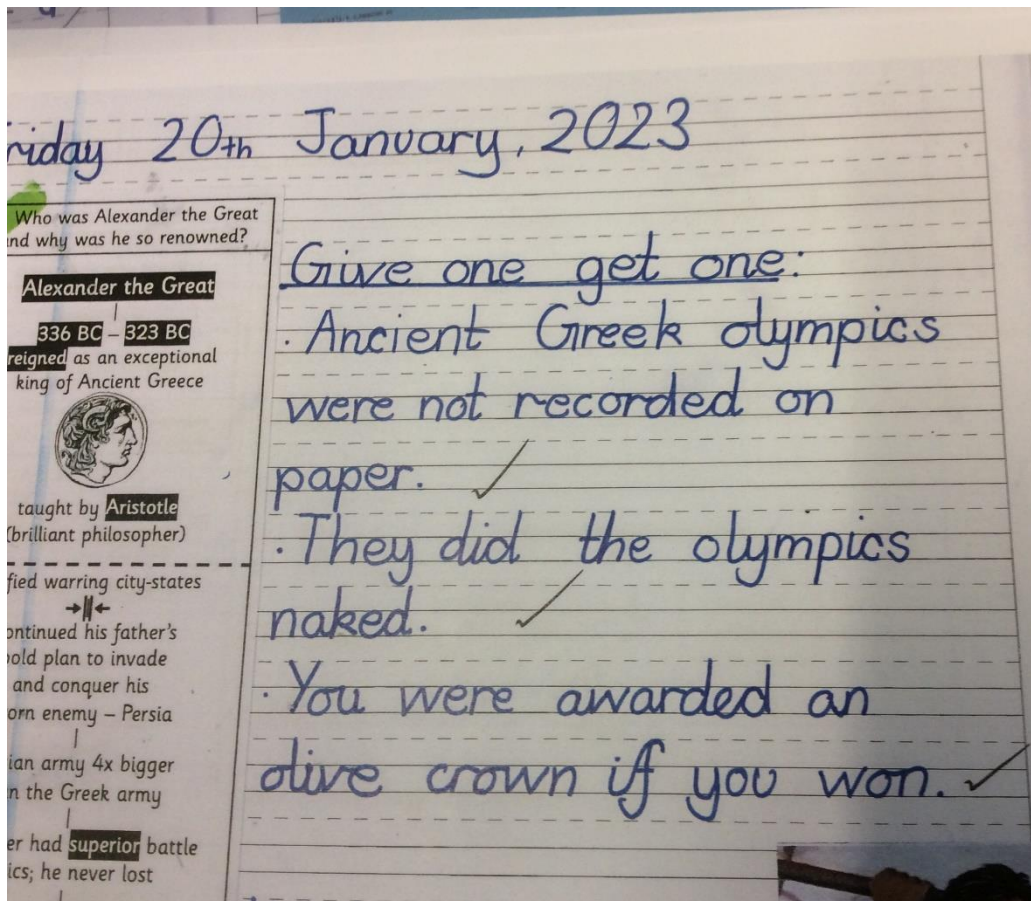 riday 20th January, 2023
Who was Alexander the Great
nd why was he so renowned?
Alexander the Great
336 BC – 323 BC
reigned as an exceptional
king of Ancient Greece
taught by Aristotle
(brilliant philosopher)
fied warring city-states
ontinued his father's
old plan to invade
and conquer his
orn enemy – Persia
ian army 4x bigger
n the Greek army
er had superior battle
ics; he never lost
Give one get one:
· Ancient Greek olympics
were not recorded on
paper.
· They did the olympics
naked.
· You were awarded an
olive crown if you won.